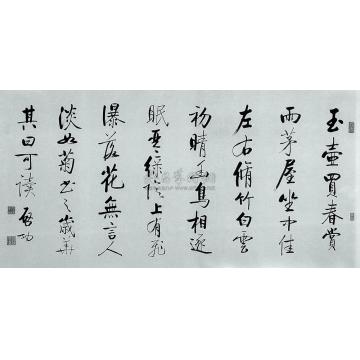 玉壺買春賞
雨茅屋坐中佳
左右脩竹白雲
初晴幽鳥相逐
眠琴綠陰上有飛
瀑落花無言人
淡如菊書之歲華
其曰可讀 啟功